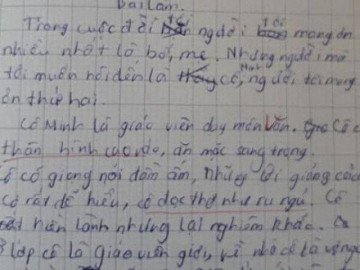 Bài làm.
Trong cuộc đời người mang ơn
nhiều nhất là bố, mẹ. Nhưng người mà
tôi muốn nói đến là cô, người tôi mang
ơn thứ hai.
Cô Minh là giáo viên dạy môn Văn. Cô c
thân hình cao ráo, ăn mặc sang trọng.
ô có giọng nói đầm ấm, những lời giảng của
cô rất dễ hiểu, cô đọc thơ như ru ngủ. Cô
hiền lành nhưng lại nghiêm khắc. Ở
lớp cô là giáo viên giỏi, về nhà cô là